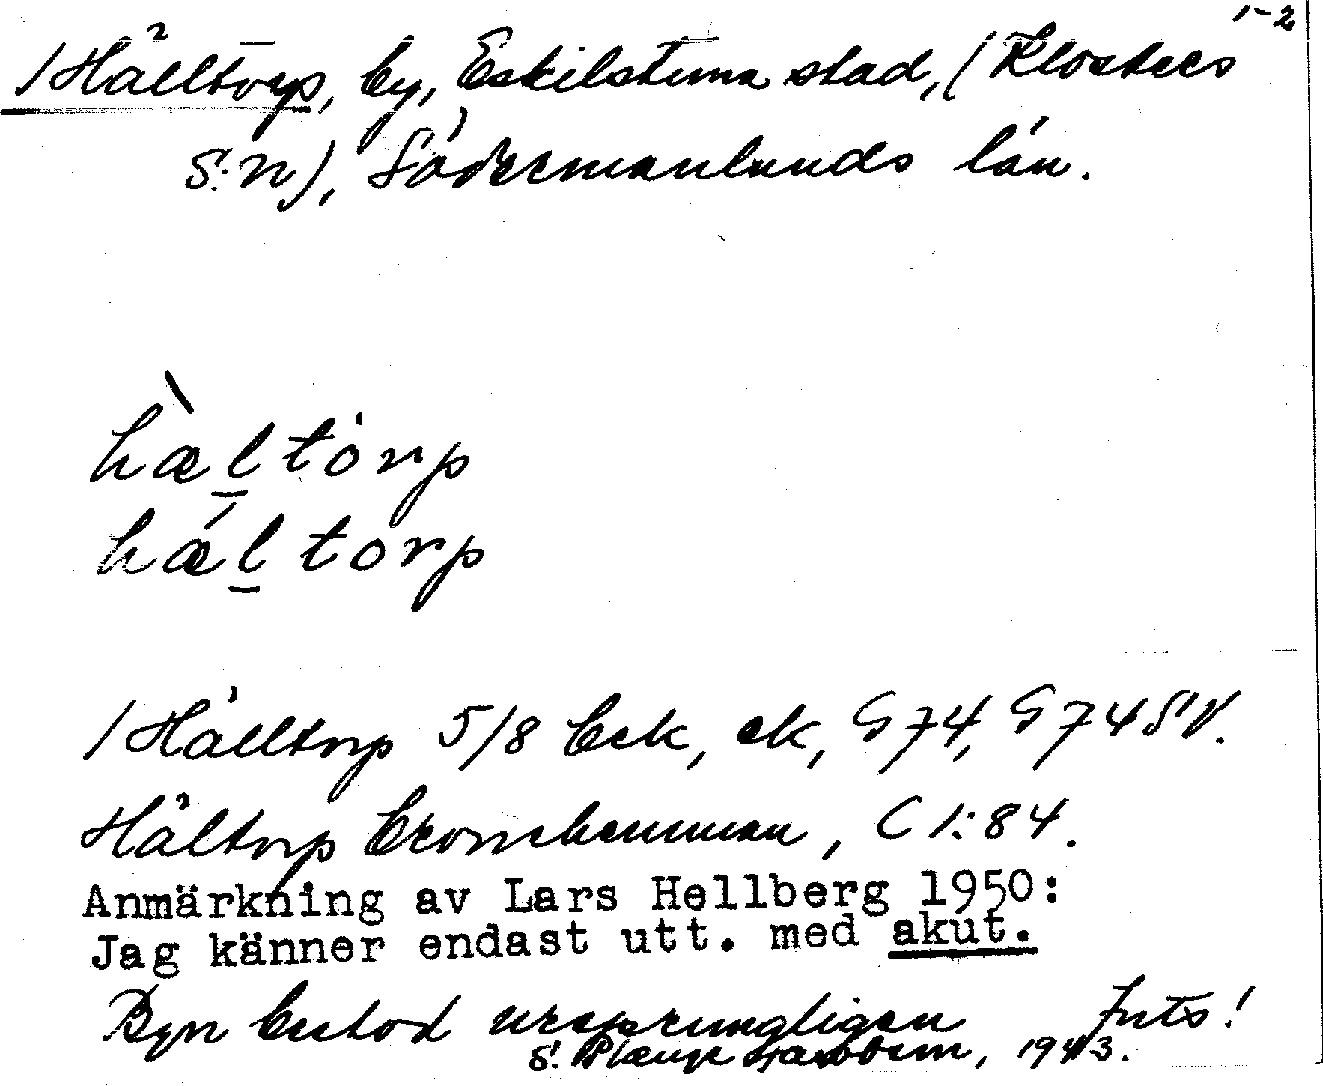 1-2
/Hälltorp, by, Eskilstuna stad, (Klosters
s:n), Södermanlands län.
hæ̀ltòrp
hǽltorp
/Hälltorp 5/8 Eek, ek, G 74, G 74 SV.
Hältorp, C 1:84.
Anmärkning av Lars Hellberg 1950:
Jag känner endast utt. med akut.
Byn bestod ursprungligen Forts!
S. 1943.